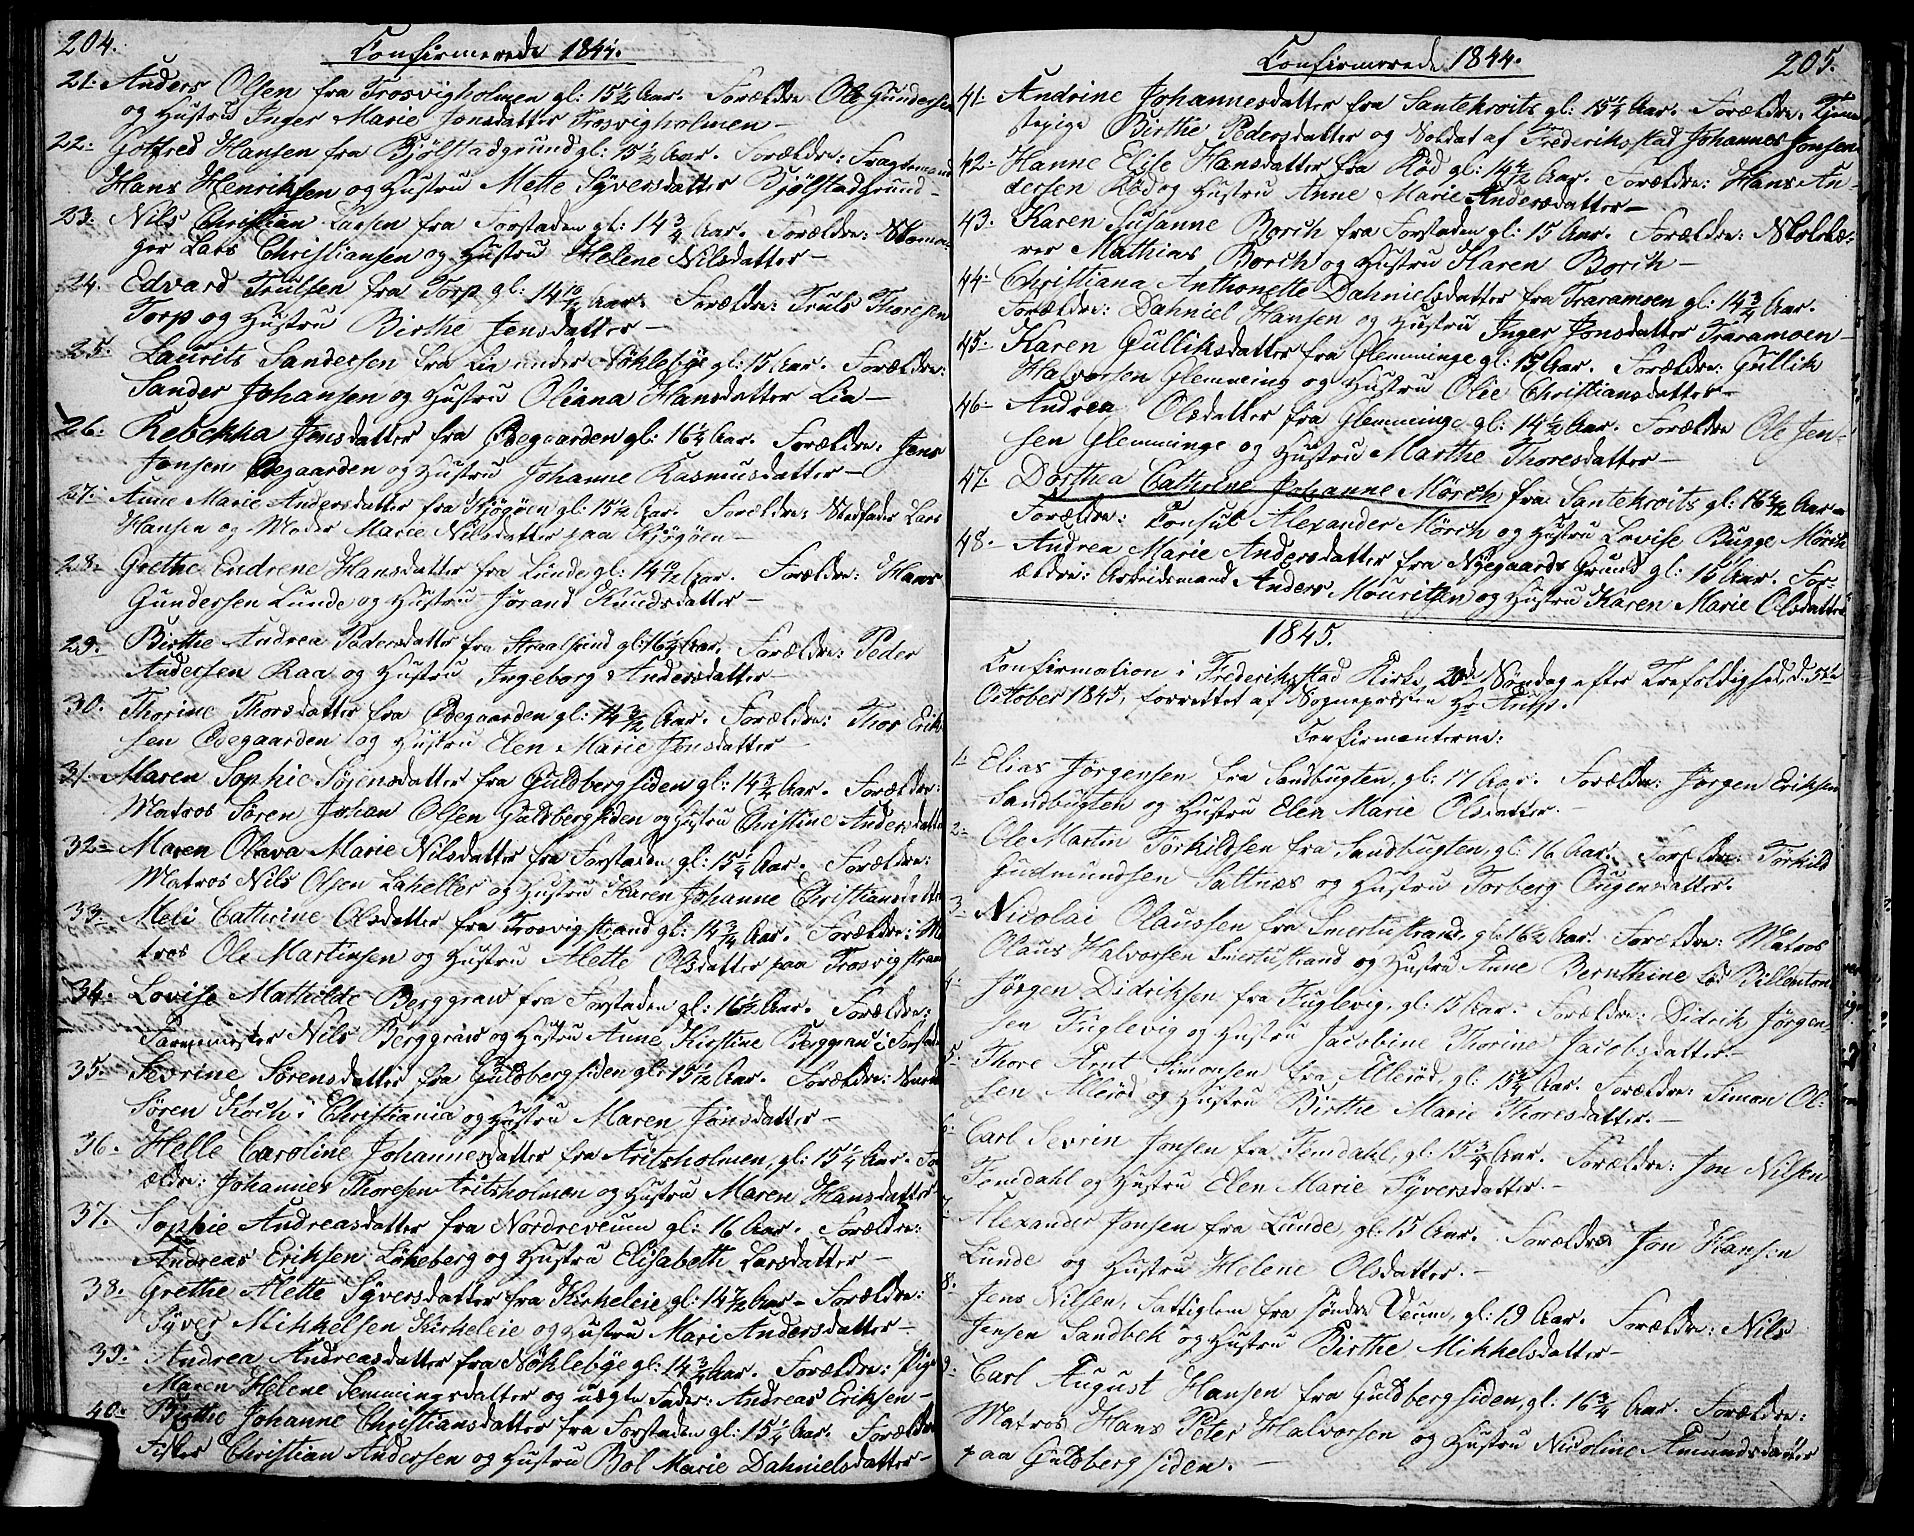 204.
Confirmerede 1844.
21. Anders Olsen fra Trosvigholmen gl: 15 1/2 Aar. Forældre Ole Gundersen
og Hustru Inger Marie Jonsdatter Trosvigholmen –
22. Gotfred Hansen fra Bjølstadgrund gl: 15 1/2 Aar. Forældre: Fragtemand
Hans Henriksen og Hustru Mette Syversdatter Bjølstadgrund –
23. Nils Christian Larsen fra Forstaden gl: 14 3/4 Aar. Forældre:
Lars Christiansen og Hustru Helene Nilsdatter –
24. Edvard Trulsen fra Torp gl: 14 10/12 Aar. Forældre: Truls Thoresen
Torp og Hustru Birthe Jensdatter –
25. Laurits Sandersen fra Lia under Nøklebye gl: 15 Aar. Forældre:
Sander Johansen og Hustru Oliana Hansdatter Lia –
26. Rebekka Jensdatter fra Ødegaarden gl: 16 1/4 Aar. Forældre: Jens
Jensen Ødegaarden og Hustru Johanne Rasmusdatter –
27. Anne Marie Andersdatter fra Kjøgøen gl: 15 1/2 Aar. Forældre: Stedfader Lars
Hansen og Moder Marie Nilsdatter paa Kjøgøen –
28. Grethe Endrene Hansdatter fra Lunde gl: 14 10/12 Aar. Forældre: Hans
Gundersen Lunde og Hustru Jørand Knudsdatter –
29. Birthe Andrea Pedersdatter fra gl: 16 1/4 Aar. Forældre: Peder
Andersen Raa og Hustru Ingeborg Andersdatter –
30. Thorine Thorsdatter fra Ødegaarden gl: 14 Aar. Forældre: Thor Erik-
sen Ødegaarden og Hustru Elen Marie Jensdatter –
31. Maren Sophie Sørensdatter fra Guldbergsiden gl: 14 3/4 Aar. Forældre:
Matros Søren Johan Olsen Guldbergsiden og Hustru Christine Andersdatter
32. Maren Olava Marie Nilsdatter fra Forstaden gl: 15 1/4 Aar. Forældre:
Matros Nils Olsen Laheller og Hustru Karen Johanne Christiansdatter
33. Meli Cathrine Olsdatter fra Trosvigstrand gl: 14 3/4 Aar. Forældre: Ma
tros Ole Martinsen og Hustru Mette Olsdatter paa Trosvigstrand
34. Lovise Mathilde Berggraw fra Forstaden gl: 16 1/2 Aar. Forældre:
Nils Berggraw og Hustru Anne Kirstine Berggrau i Forstade
35. Sevrine Sørensdatter fra Guldbergsiden gl: 15 Aar. Forældre:
Søren Koch i Christiania og Hustru Maren Jonsdatter –
36. Helle Caroline Johannesdatter fra Aritsholmen, gl: 15 1/4 Aar. For
ældre: Johannes Thoresen Aritsholmen og Hustru Maren Hansdatter
37. Sophie Andreasdatter fra Nordreveum gl: 16 Aar. Forældre:
Andreas Eriksen Løkeberg og Hustru Elisabeth Larsdatter –
38. Grethe Mette Syversdatter fra Kirkeleie gl: 14 Aar – Forældre:
Syver Mikkelsen Kirkeleie og Hustru Mari Andersdatter –
39. Andrea Andreasdatter fra Nøklebye gl: 14 3/4 Aar. Forældre: Pige
Maren Helene Semmingsdatter og uægte Fader: Andreas Eriksen –
40. Birthe Johanne Christiansdatter fra Forstaden gl: 15 1/4 Aar. Forældre
Fisker Christian Andersen og Hustru Bol Marie Dahnielsdatter –
Confirmerede 1844.
205.
41. Andrine Johannesdatter fra Santekroits gl: 15 1/4 Aar. Forældre: Tjene-
stepige Birthe Pedersdatter og Soldat af Frederiksstad Johannes Jonsen
42. Hanne Elise Hansdatter fra Rød gl: 14 Aar. Forældre: Hans An-
dersen Rød og Hustru Anne Marie Andersdatter –
43. Karen Susanne Borch fra Forstaden gl: 15 Aar. Forældre: Skolelæ-
rer Mathias Borch og Hustru Karen Borch –
44. Christiana Anthonette Dahnielsdatter fra Traramoen gl: 14 3/4 Aar.
Forældre: Dahniel Hansen og Hustru Inger Jonsdatter Traramoen –
45. Karen Gulliksdatter fra Glemminge gl: 15 Aar. Forældre: Gullik
Halvorsen Glemming og Hustru Olie Christiansdatter –
46. Andrea Olsdatter fra Glemminge gl: 14 1/2 Aar. Forældre Ole Jen-
sen Glemminge og Hustru Marthe Thoresdatter –
47. Dorthea Cathrine Johanne Mørch fra Santekroits gl: 16 Aar –
Forældre: Consul Alexander Mørch og Hustru Lovise Bugge Mørch
48. Andrea Marie Andersdatter fra Nygaards Grund gl: 15 Aar. For-
ældre: Arbeidsmand Anders Mouritzen og Hustru Karen Marie Olsdatter
1845.
Confirmation i Frederiksstad Kirke, 20d Søndag efter Trefoldighed d. 5te
October 1845, forrettet af Sognepresten Hr
Confirmanterne:
1. Elias Jørgensen fra Sandbugten, gl: 17 Aar. Forældre: Jørgen Eriksen
Sandbugten og Hustru Elen Marie Olsdatter. –
2. Ole Martin Torkildsen fra Sandbugten, gl: 16 Aar. Forældre: Torkild
Gudmundsen Saltnæs og Hustru Torberg Ougensdatter.
3. Nicolai Olaussen fra Smertustrand, gl: 16 1/2 Aar. Forældre: Matros
Olaus Halvorsen Smertustrand og Hustru Anne Bernthine
4. Jørgen Didriksen fra Fuglevig, gl: 15 Aar. Forældre: Didrik Jørgen-
sen Fuglevig og Hustru Jacobine Thorine Jacobsdatter –
5. Thore Arnt Simonsen fra Allerød gl: 15 1/4 Aar. Forældre: Simon Ol-
sen Allerød og Hustru Birthe Marie Thoresdatter. –
6. Carl Sevrin Jonsen fra Femdahl, gl: 15 3/4 Aar. Forældre: Jon Nilsen
Femdahl og Hustru Elen Marie Syversdatter. –
7. Alexander Jonsen fra Lunde, gl: 15 Aar. Forældre Jon Hansen
Lunde og Hustru Helene Olsdatter. –
8. Jens Nilsen, Fattiglem fra søndre Veum, gl: 19 Aar. Forældre: Nils
Jensen Sandbek og Hustru Birthe Mikkelsdatter –
9. Carl August Hansen fra Guldbergsiden, gl: 16 3/4 Aar. Forældre:
Matros Hans Peter Halvorsen og Hustru Nicoline Amundsdatter
paa Guldbergsiden. –